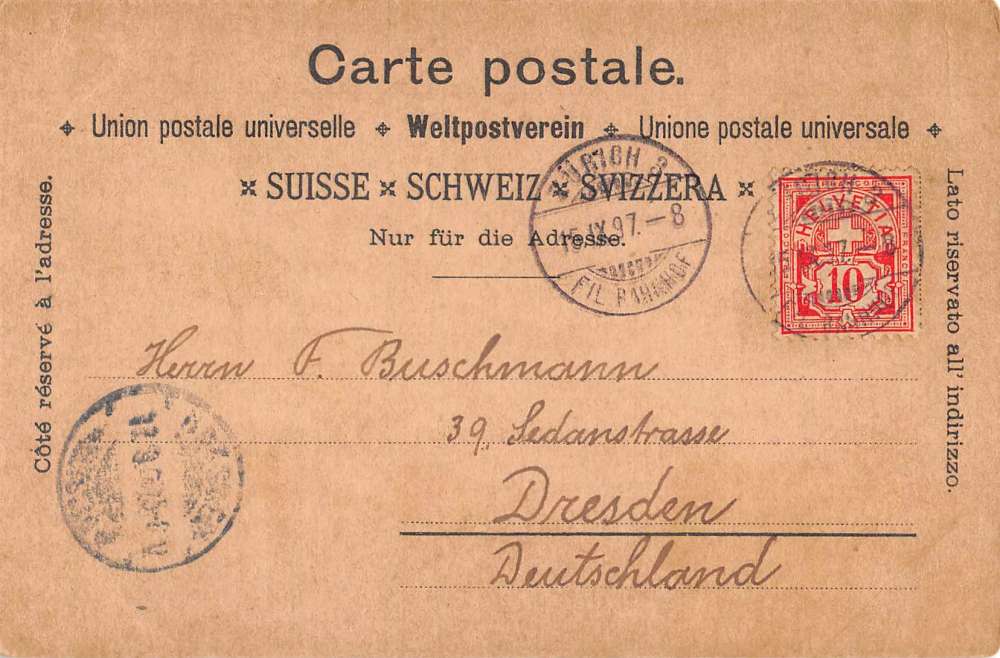 Carte postale.
Union postale universelle Weltpostverein Unione postale universale
SUISSE SCHWEIZ SVIZZERA
Nur für die Adresse.
Côté réservé à l'adresse.
Lato riservato all' indirizzo.
ZÜRICH 3
15.IX.97.-8
FIL. BAHNHOF
HELVETIA
10
Herrn F. Buschmann
39, Sedanstrasse
Dresden
Deutschland